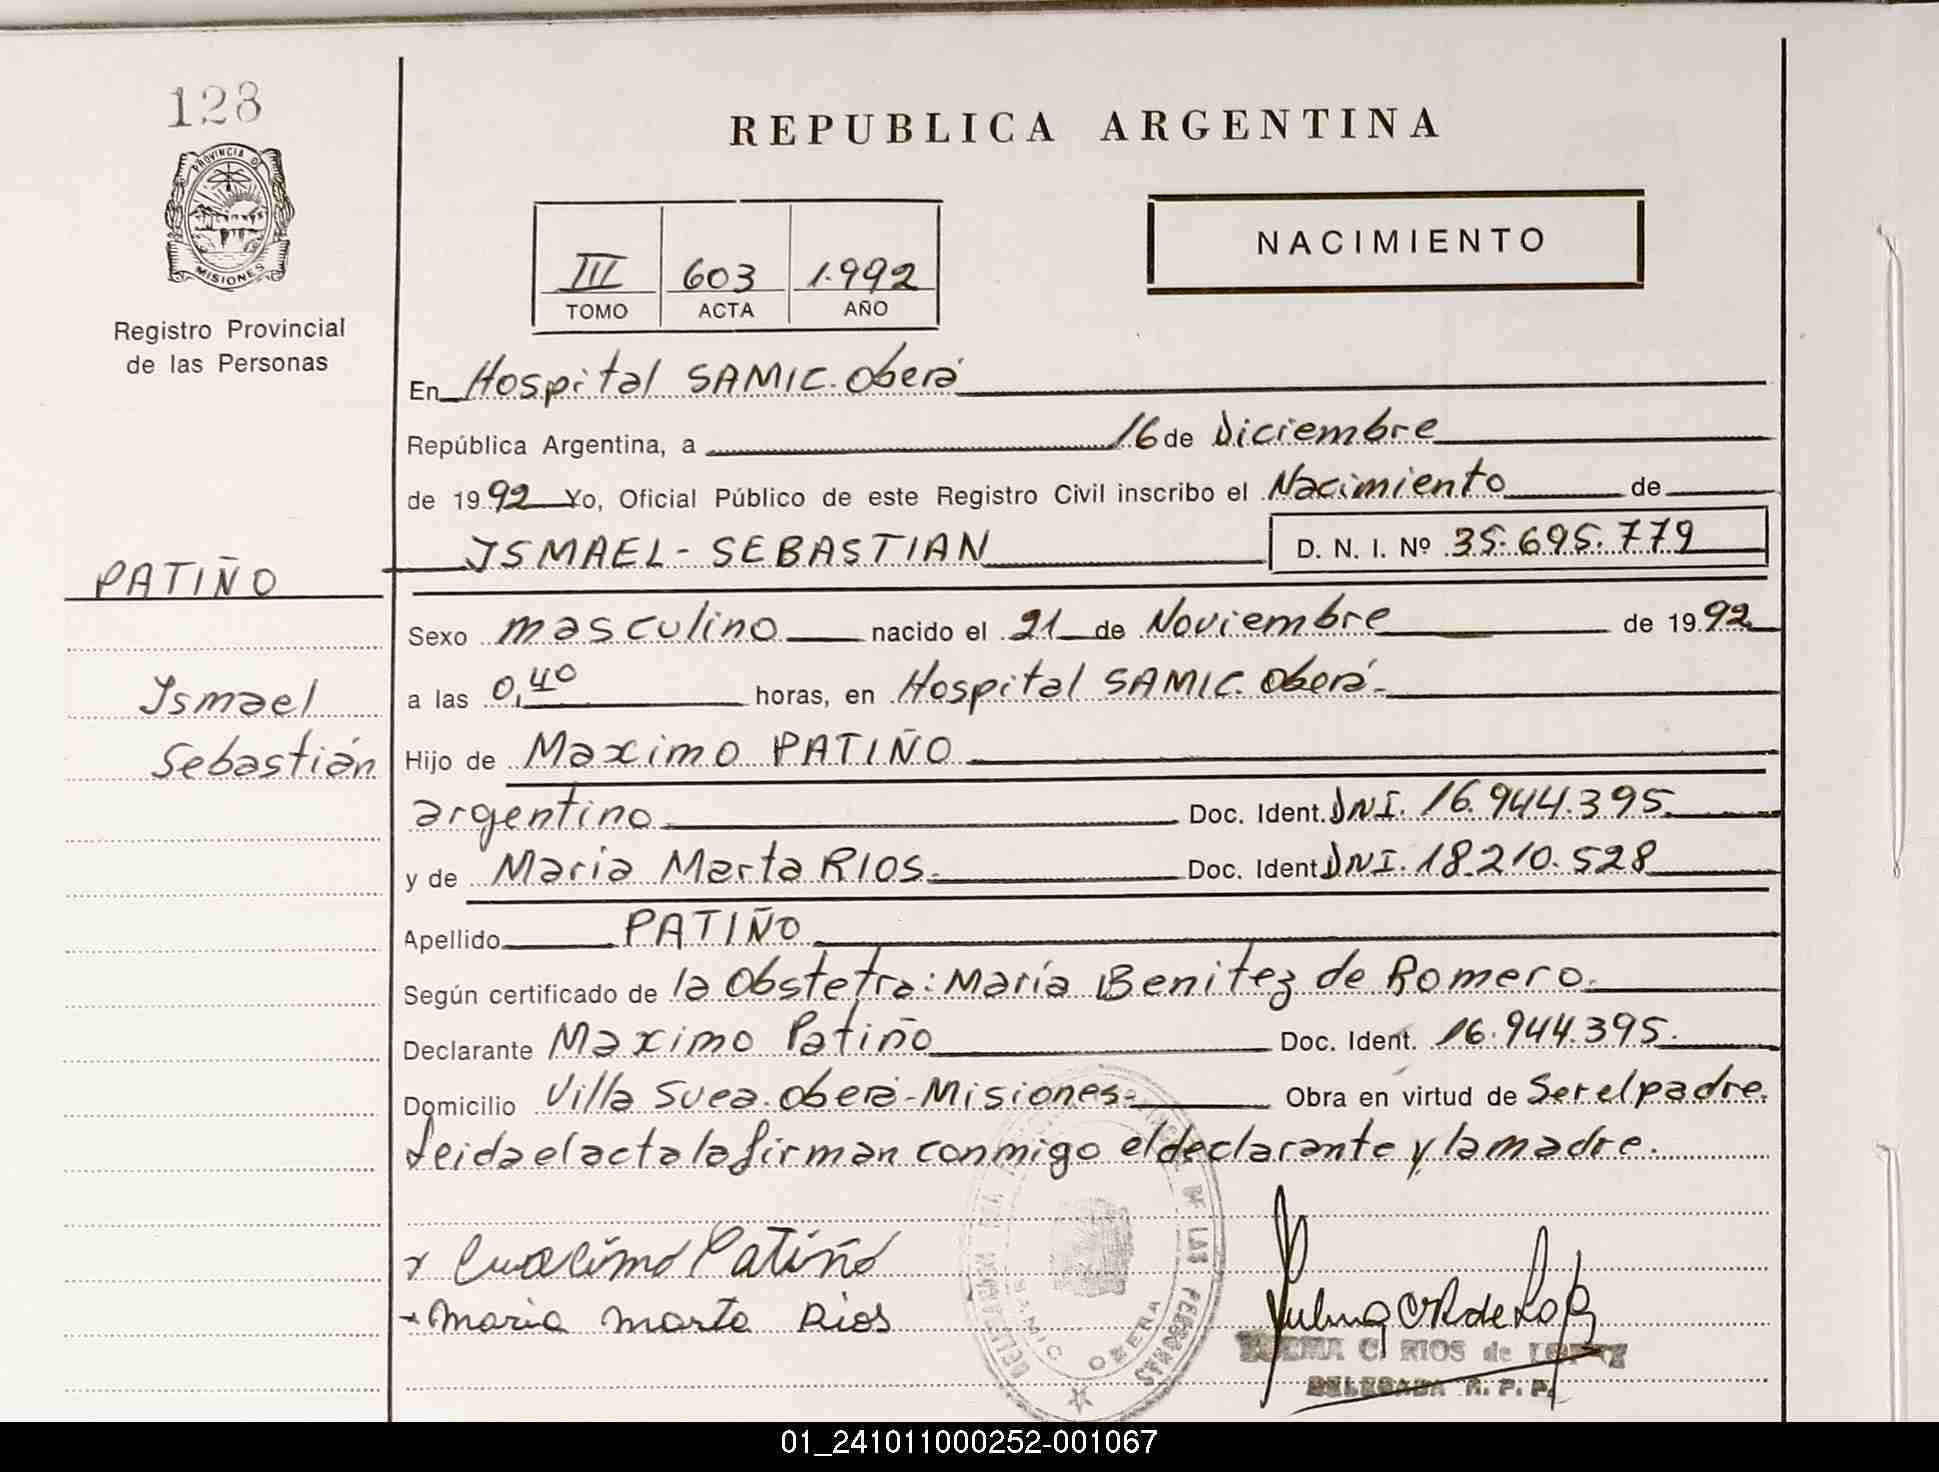 128
PROVINCIA D
MISIONES
Registro Provincial
de las Personas
REPUBLICA ARGENTINA
III 603 1.992
TOMO ACTA AÑO
NACIMIENTO
En Hospital SAMIC. Oberá
República Argentina, a 16 de Diciembre
de 1992 Yo, Oficial Público de este Registro Civil inscribo el Nacimiento de
ISMAEL - SEBASTIAN D. N. I. Nº 35.695.779
PATIÑO
Ismael
Sebastián
Sexo masculino nacido el 21 de Noviembre de 1992
a las 0,40 horas, en Hospital SAMIC. Oberá.-
Hijo de Maximo PATIÑO
argentino Doc. Ident. DNI. 16.944.395.
y de Maria Marta RIOS.- Doc. Ident DNI. 18.210.528
Apellido PATIÑO
Según certificado de la Obstetra: María Benitez de Romero.
Declarante Maximo Patiño Doc. Ident. 16.944.395.
Domicilio Villa Svea. Oberá - Misiones.- Obra en virtud de Ser el padre.
Leida el acta la firman conmigo el declarante y la madre.
Patiño
Maria Marta Rios
DE LAS PERSONAS
SAMIC OBERA
C. RIOS de LOPEZ
DELEGADA R. P. P.
01_241011000252-001067